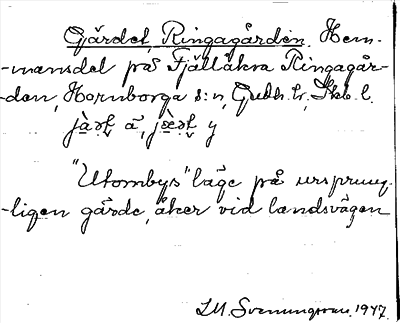 Gärdet, Ringagården. Hem-
-mansdel på Fjällåkra Ringagår-
-den, Hornborga s:n, Gudh. hd, Skb. l.
jàət ä, jèət y
"Utombys" läge på ursprung-
-ligen gärde, åker vid landsvägen
I.M. Svenungsson. 1947.